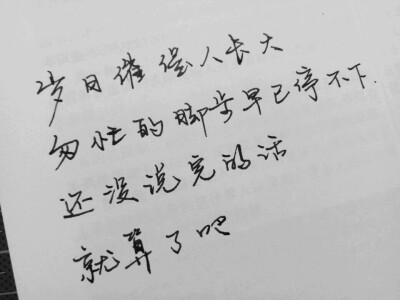 岁月催促人长大
匆忙的脚步早已停不下.
还没说完的话
就算了吧